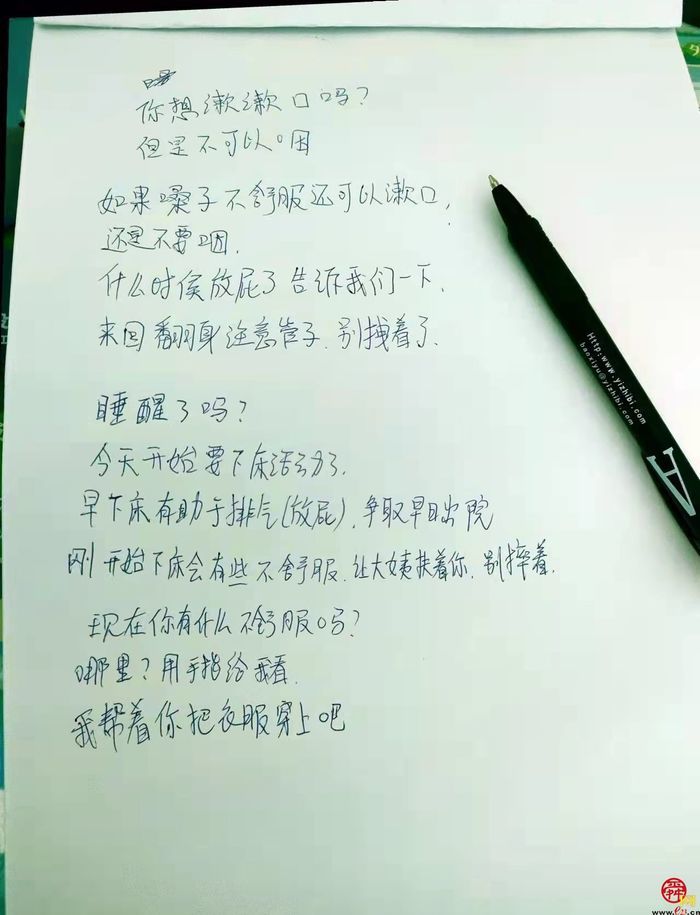 你想漱漱口吗？
但是不可以咽
如果嗓子不舒服还可以漱口，
还是不要咽.
什么时侯放屁了告诉我们一下.
来回翻身注意管子.别拽着了.
睡醒了吗？
今天开始要下床活动了.
早下床有助于排气(放屁).争取早日出院
刚开始下床会有些不舒服.让大姨扶着你.别摔着.
现在你有什么不舒服吗？
哪里？用手指给我看.
我帮着你把衣服穿上吧
Http:www.yizhibi.com
baoxiyu@yizhibi.com
舜
网
www.e23.cn